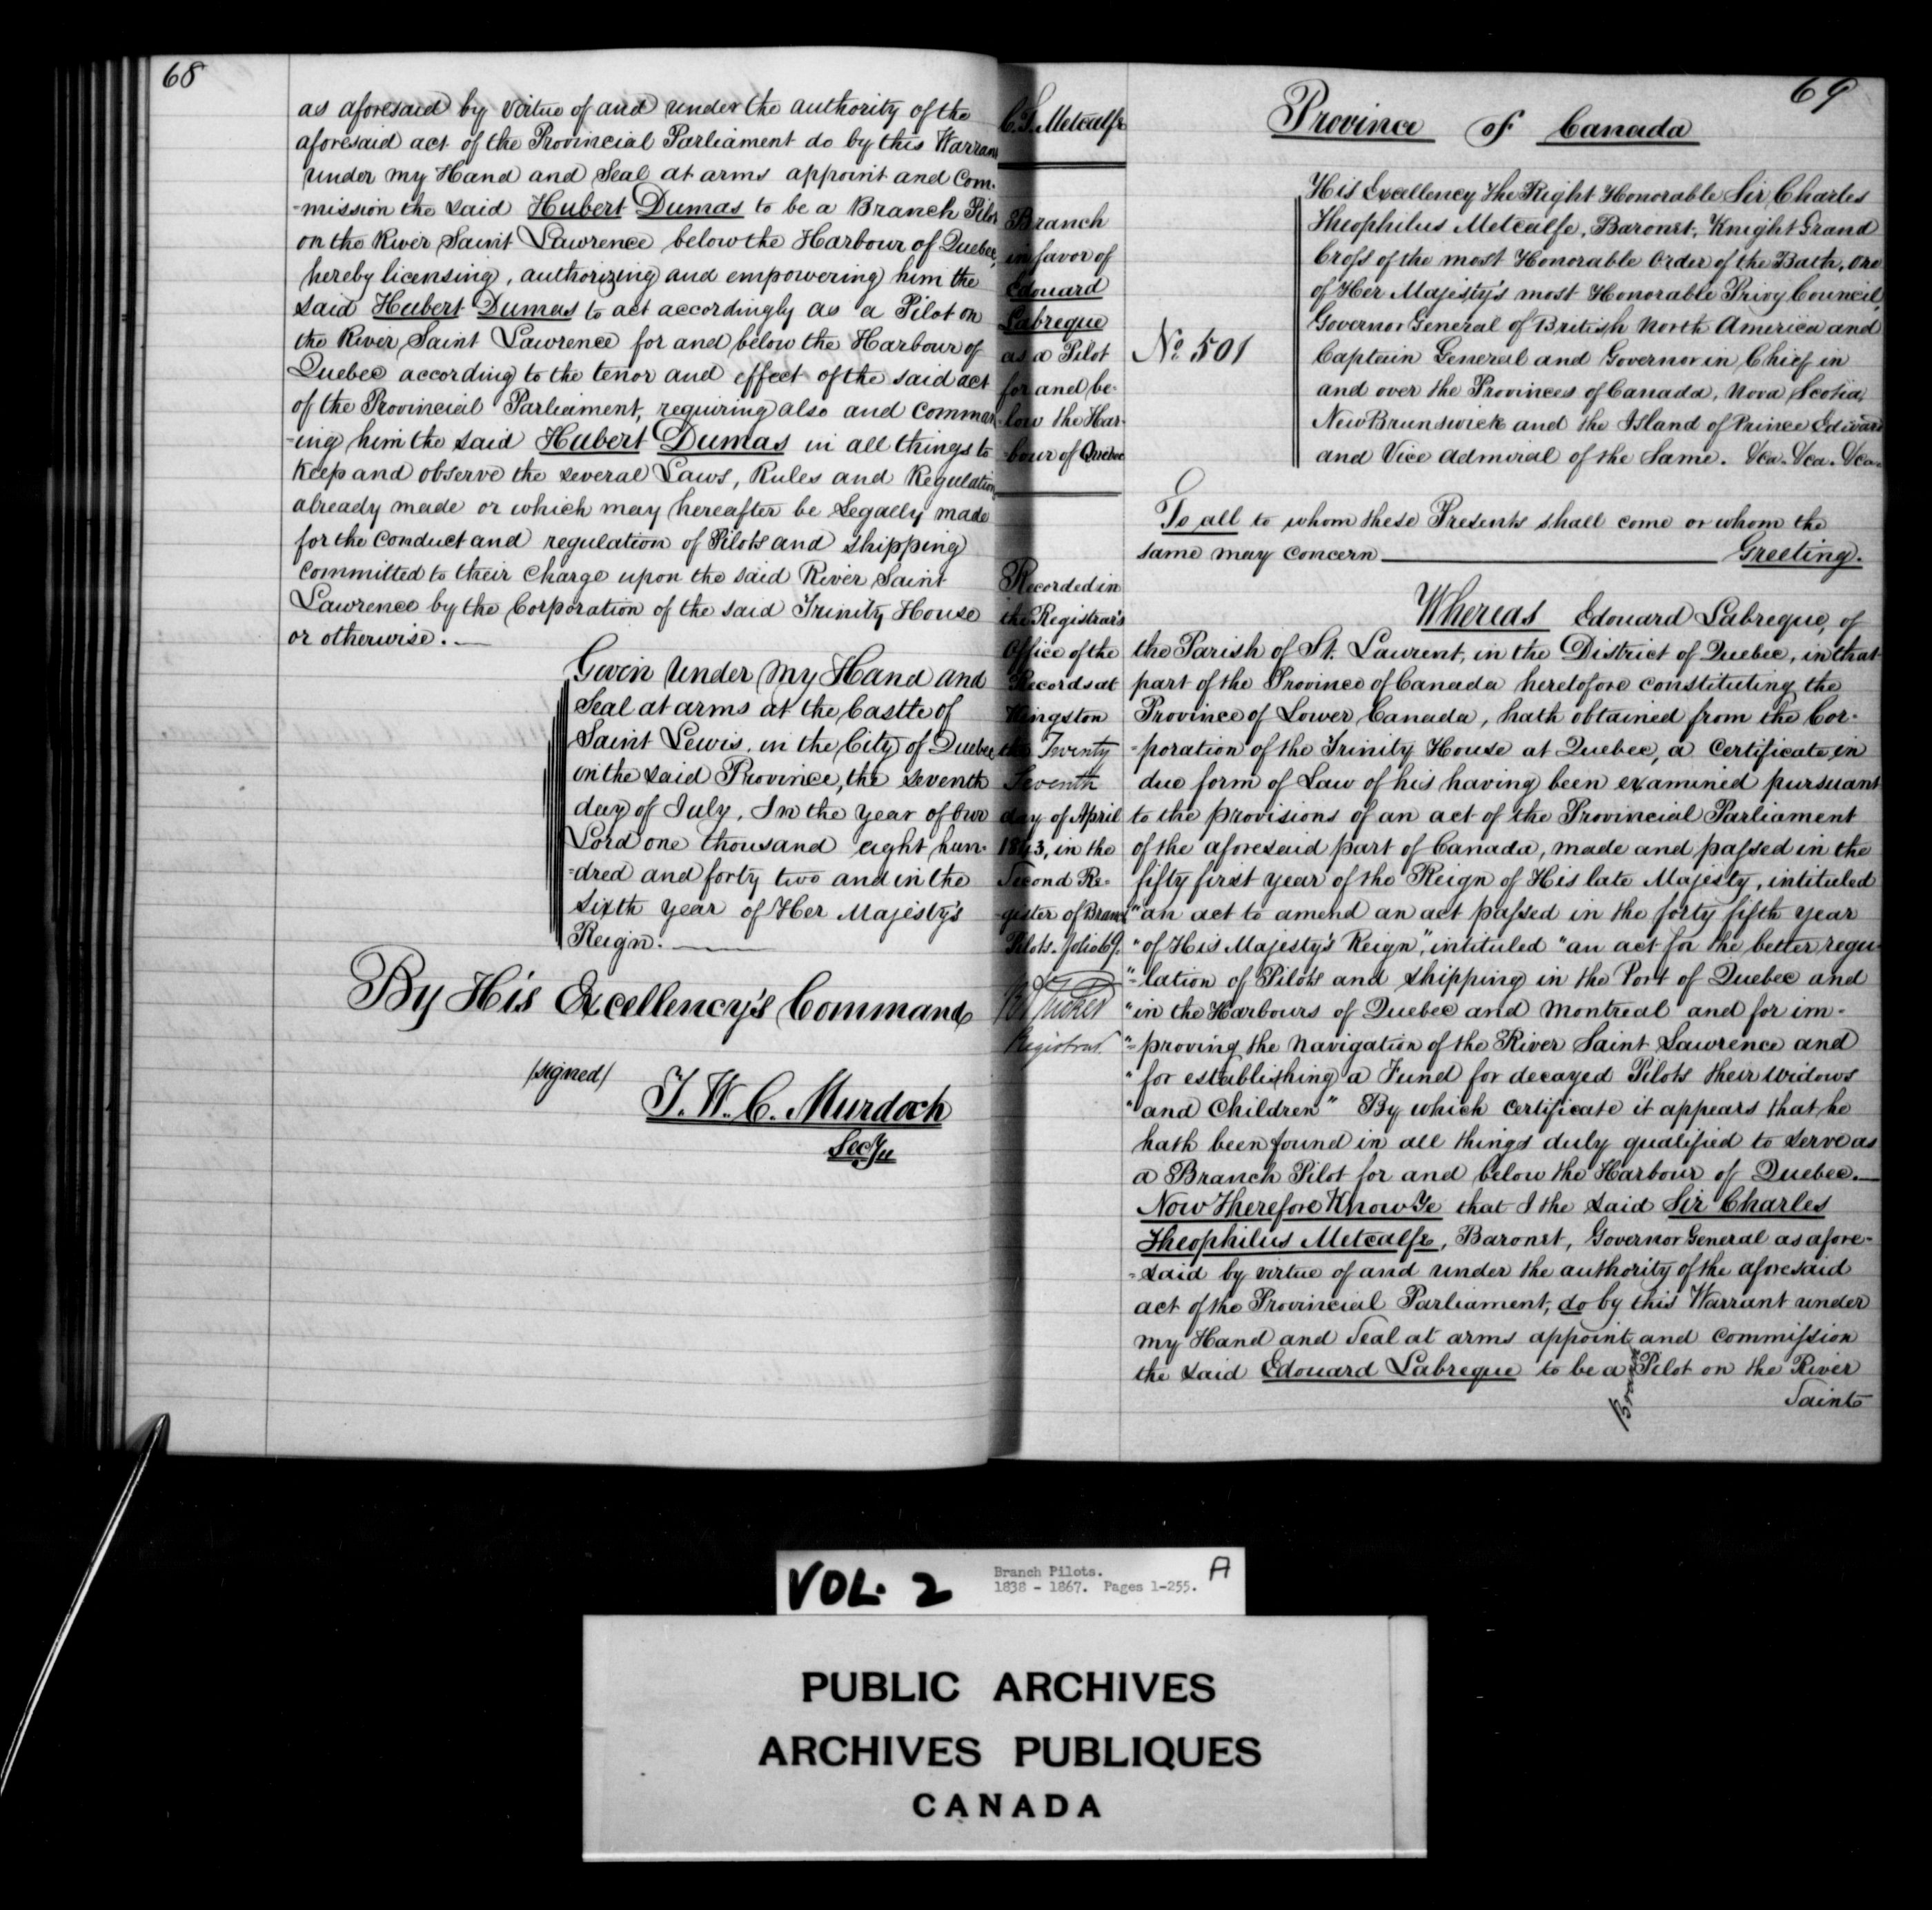 68
as aforesaid by virtue of and under the authority of the
aforesaid act of the Provincial Parliament do by this Warran
under my Hand and Seal at arms appoint and Com-
-mission the said Hubert Dumas to be a Branch Pilot
on the River Saint Lawrence below the Harbour of Quebec,
hereby licensing, authorizing and empowering him the
said Hubert Dumas to act accordingly as a Pilot on
the River Saint Lawrence for and below the Harbour of
Quebec according to the tenor and effect of the said act
of the Provincial Parliament, requiring also and comman
-ing him the said Hubert Dumas in all things to
Keep and observe the several Laws, Rules and Regulation
already made or which may hereafter be Legally made
for the conduct and regulation of Pilots and shipping
committed to their charge upon the said River Saint
Lawrence by the Corporation of the said Trinity House
or otherwise.—
Given under my Hand and
Seal at arms at the Castle of
Saint Lewis, in the City of Quebec
in the said Province, the seventh
day of July, In the year of our
Lord one thousand eight hun-
-dred and forty two and in the
sixth year of Her Majesty's
Reign.—
By His Excellency's Command
/signed/
T. W. C. Murdoch
Secy
C. T. Metcalfe
Branch
in favor of
Edouard
Labreque
as a Pilot
for and be-
-low the Har-
-bour of Quebec
Recorded in
the Registrar's
Office of the
Records at
Kingston
the Twenty
Seventh
day of April
1843, in the
Second Re-
-gister of Branch
Pilots. folio 69.
Tucker
Registrar
69
Province of Canada
His Excellency The Right Honorable Sir Charles
Theophilus Metcalfe, Baronet, Knight Grand
Cross of the most Honorable Order of the Bath, One
of Her Majesty's most Honorable Privy Council,
Governor General of British North America and
Captain General and Governor in Chief in
and over the Provinces of Canada, Nova Scotia,
New Brunswick and the Island of Prince Edward
and Vice Admiral of the Same. &ca. &ca. &ca.
No. 501
To all to whom these Presents shall come or whom the
same may concern — Greeting.
Whereas Edouard Labreque, of
the Parish of St. Laurent, in the District of Quebec, in that
part of the Province of Canada heretofore constituting the
Province of Lower Canada, hath obtained from the Cor-
-poration of the Trinity House at Quebec, a Certificate in
due form of Law of his having been examined pursuant
to the provisions of an act of the Provincial Parliament
of the aforesaid part of Canada, made and passed in the
fifty first year of the Reign of His late Majesty, intituled
"an act to amend an act passed in the forty fifth year
"of His Majesty's Reign", intituled "an act for the better regu-
"-lation of Pilots and shipping in the Port of Quebec and
"in the Harbours of Quebec and Montreal and for im-
"-proving the navigation of the River Saint Lawrence and
"for establishing a Fund for decayed Pilots their widows
"and Children" By which certificate it appears that he
hath been found in all things duly qualified to serve as
a Branch Pilot for and below the Harbour of Quebec.—
Now Therefore Know Ye that I the said Sir Charles
Theophilus Metcalfe, Baronet, Governor General as afore-
-said by virtue of and under the authority of the aforesaid
act of the Provincial Parliament, do by this Warrant under
my Hand and Seal at arms appoint and commission
the said Edouard Labreque to be a Branch Pilot on the River
Saint
VOL. 2
Branch Pilots.
1838 - 1867. Pages 1-255.
A
PUBLIC ARCHIVES
ARCHIVES PUBLIQUES
CANADA